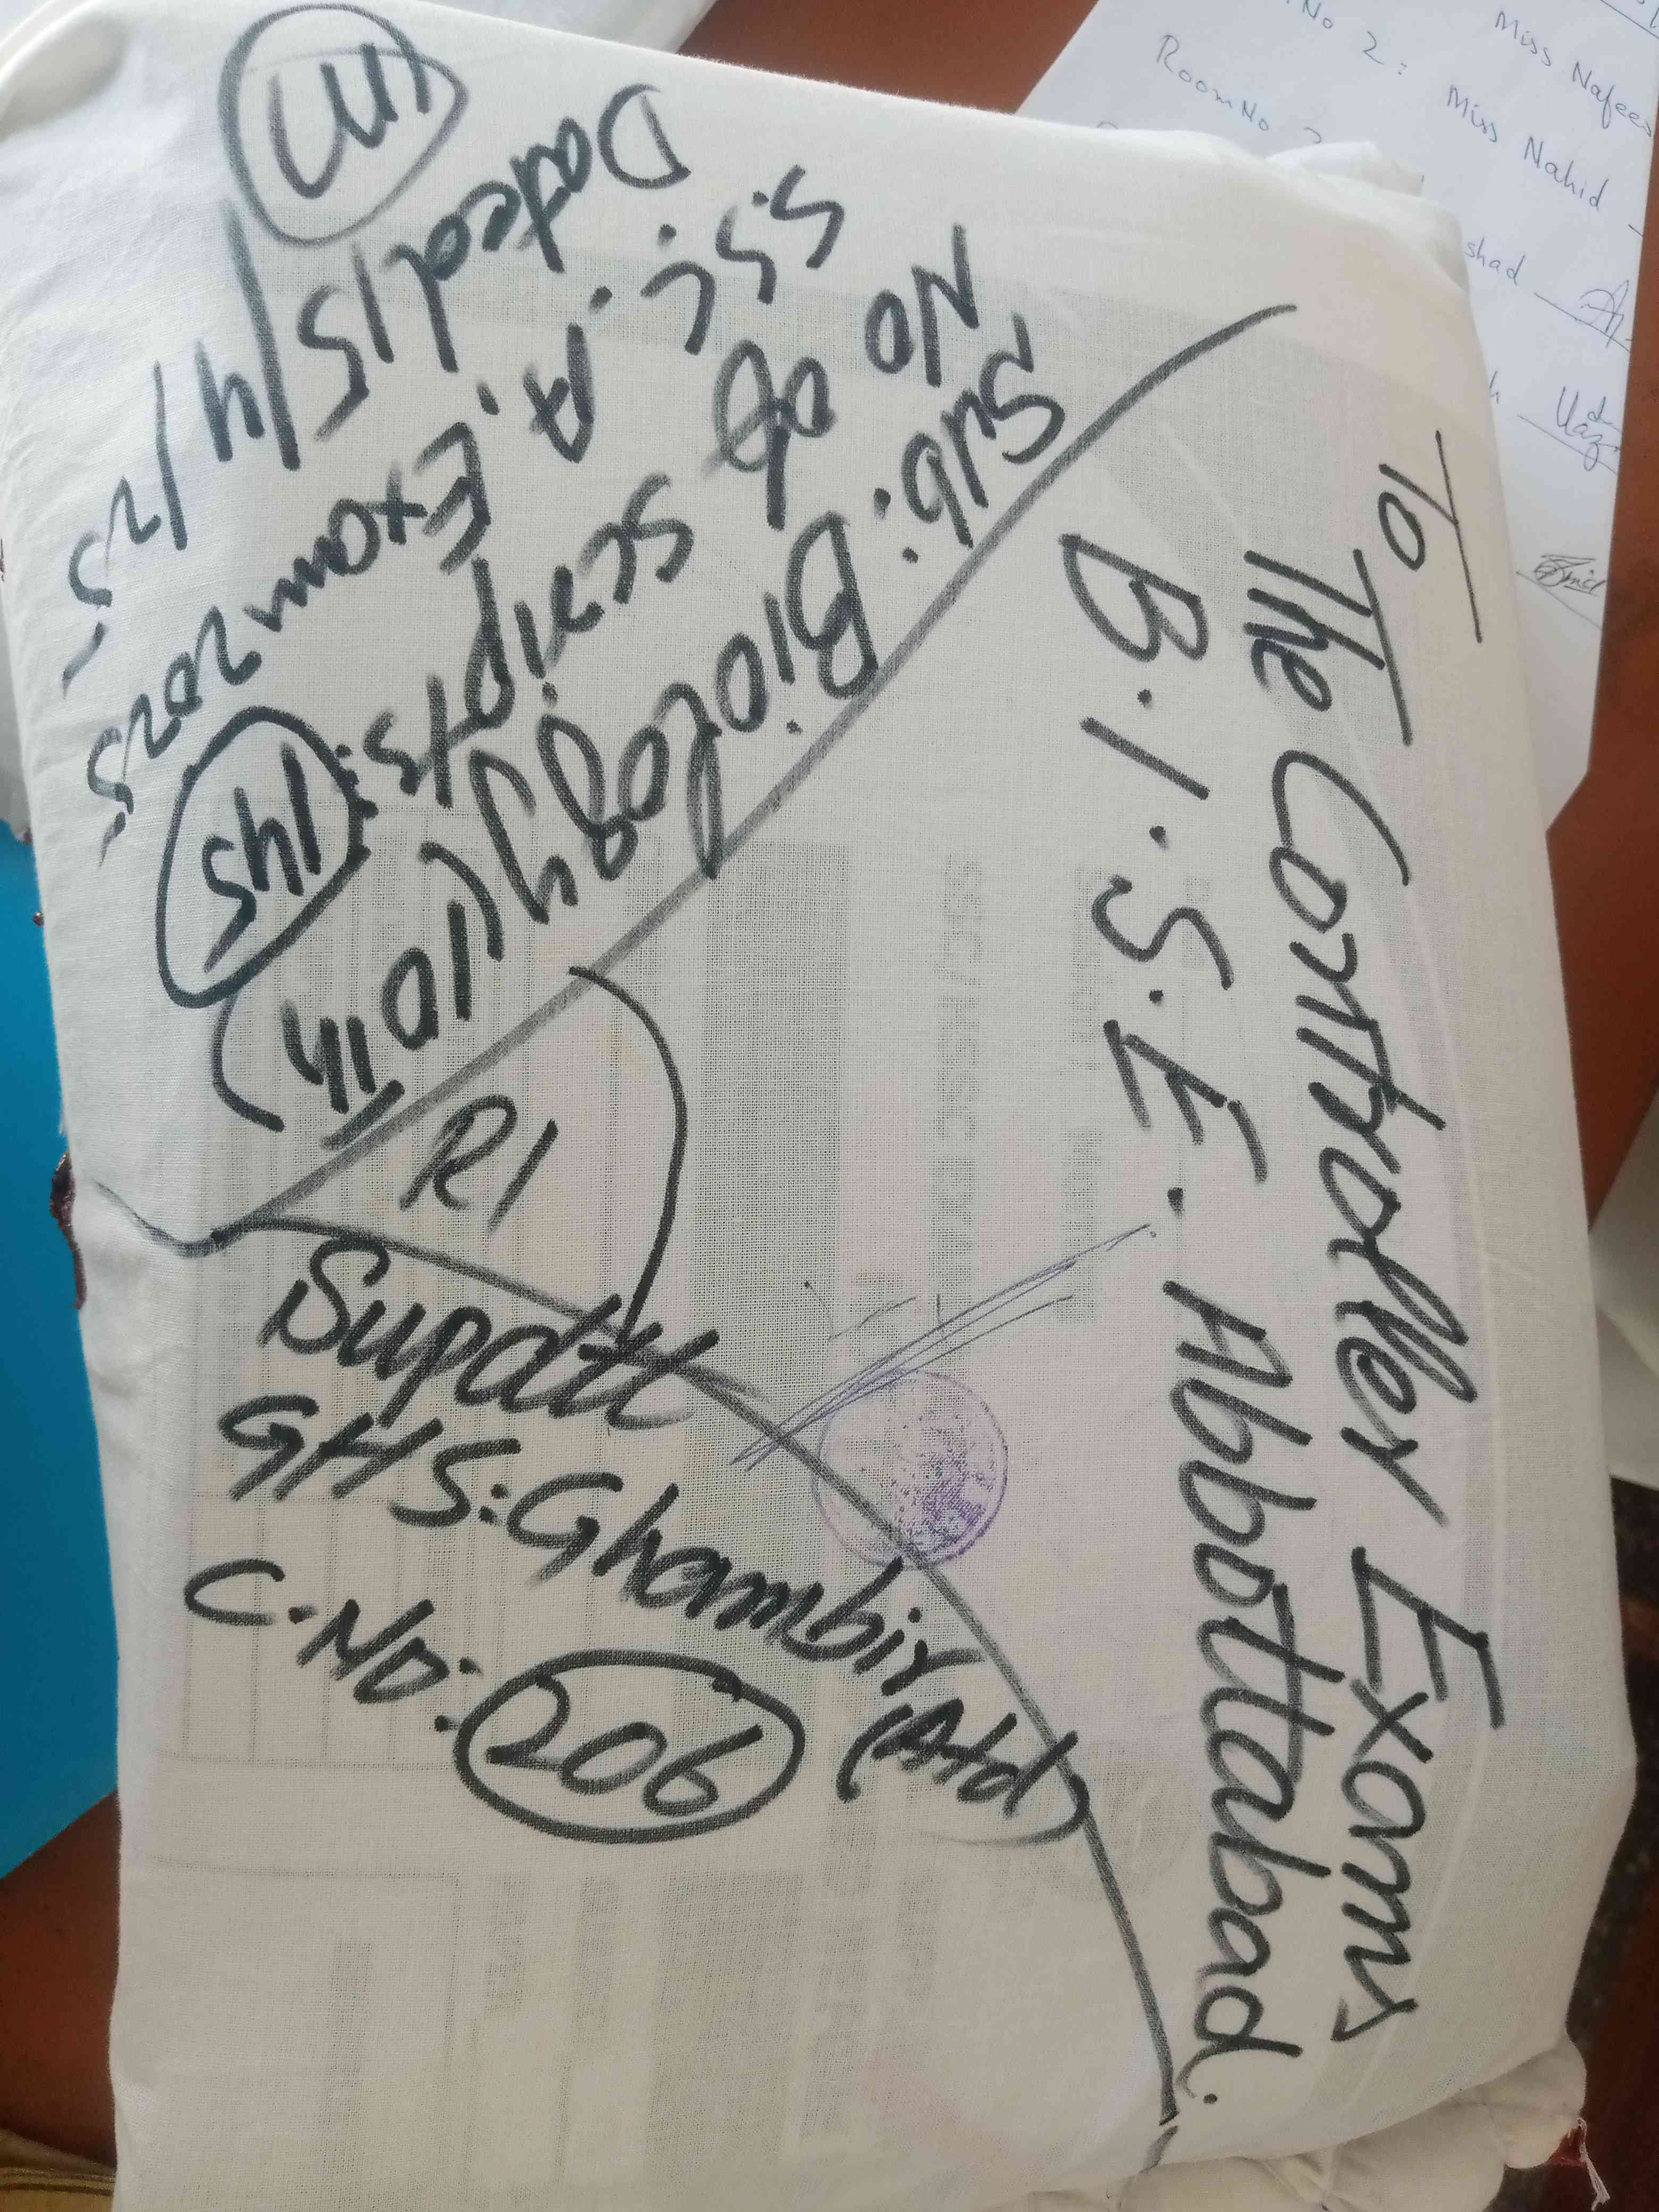 To
The Controller Exams
B.I.S.E. Abbottabad.
Sub: Biology (10th)
No of scripts: 145
S.S.C. A. Exam 2025
Dated 15/4/25
M
R1
Supdtt
GHS: Ghambir (Atd)
C.No: 206
No 2: Miss Nahid
Miss Nafees
Room No
shad